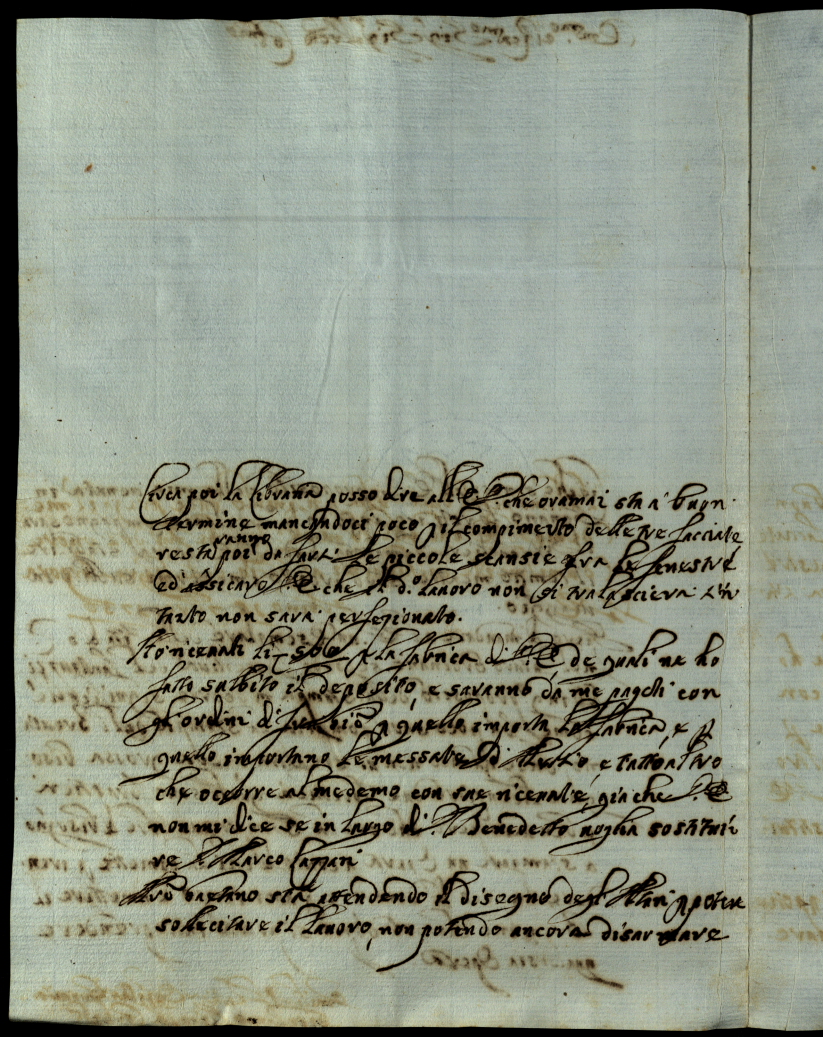 Circa poi la Libraria posso dire all' che oramai sta a' buon
termine mancandoci poco p il compimento delle tre facciate
restaranno poi da farsi le piccole stansie fra le fenestre
ed assicuro che il d.o lavoro non si tralascierà s'in
tanto non sarà perfezionato.
Hò riceuuti li p la fabrica di de quali ne ho
fatto subbito il deposito, e saranno da me pagati con
gli ordini di p quello importa la fabrica, e p
quello importano le messate di e tutt'altro
che occorre al medemo con sue riceuute, già che
non mi dice se in luogo di Benedetto voglia sostitui
re Marco Cappari
Mro Gaetano stà attendendo il disegno degl' p poter
sollecitare il lavoro, non potendo ancora disarmare